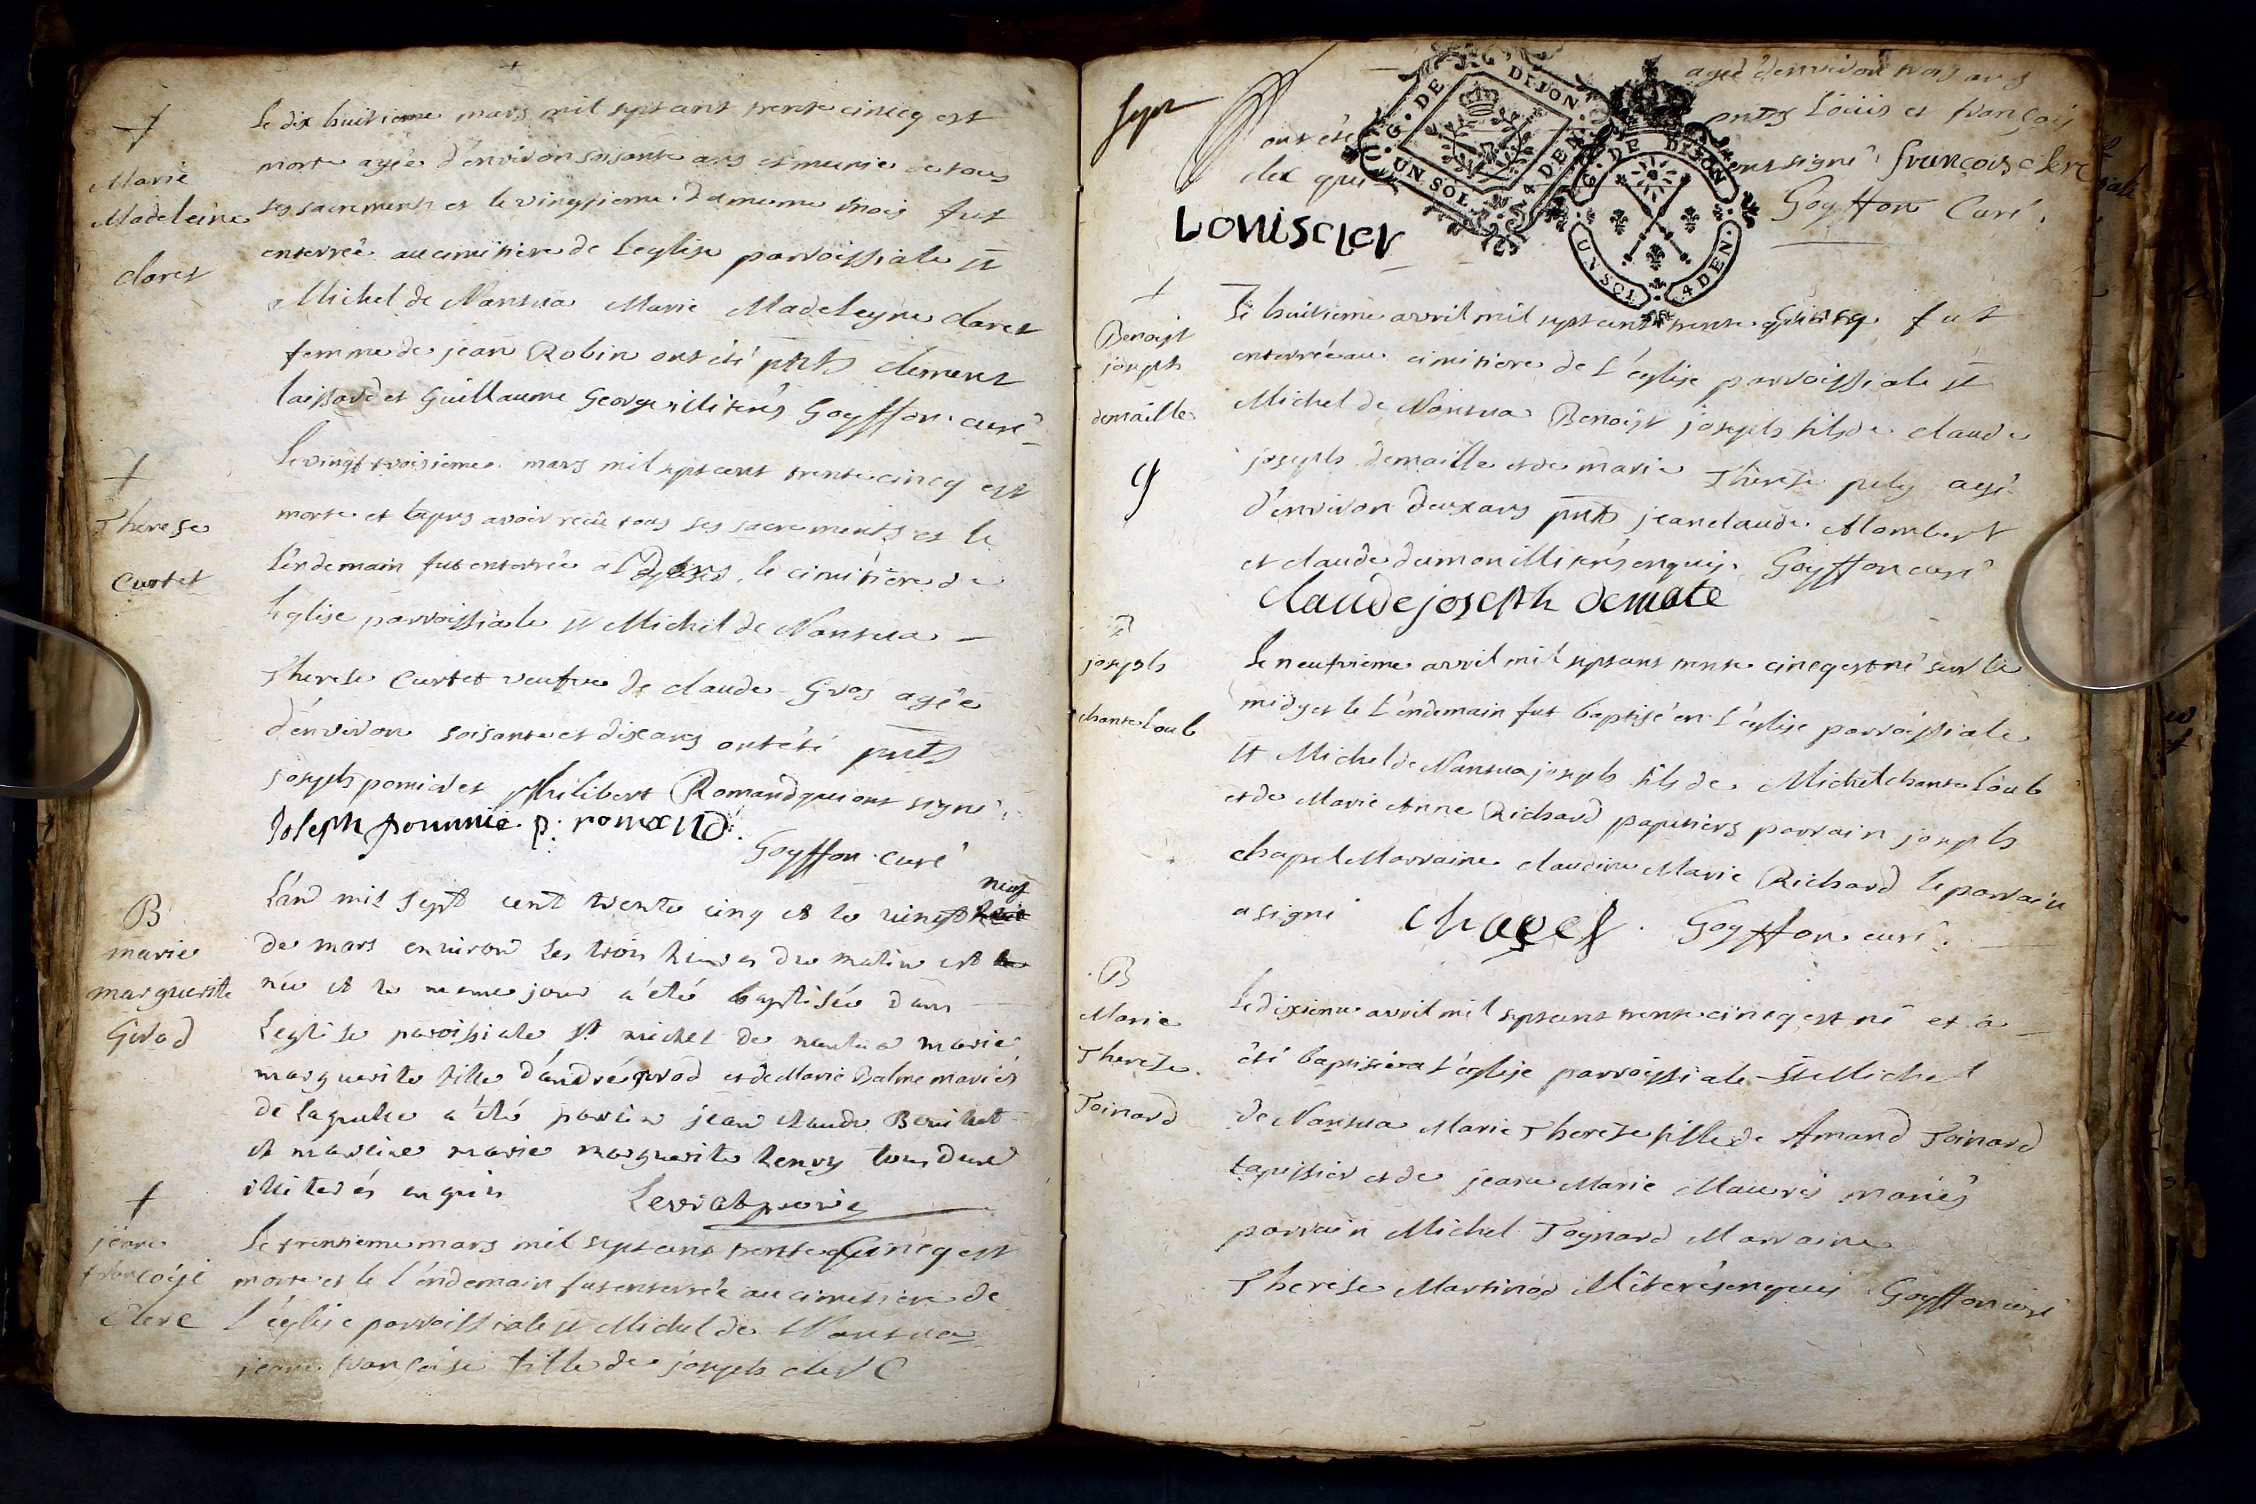 +
Marie
Madeleine
claret
Le dix huitieme mars mil sept cent trente cincq est
morte agée d'environ soisante ans et munie de tous
ses sacrements et le vingtieme du meme mois fut
enterrée au cimitiere de l'eglise parroissiale st
Michel de Nantua Marie Madeleyne claret
femme de jean Robin ont été pnts clement
laissard et Guillaume George illiterés Goyffon curé
+
Therese
Curtet
Le vingt troisieme mars mil sept cent trente cincq est
morte et apres avoir reçu tous ses sacrements et le
l'endemain fut enterrée le cimitiere de
l'eglise parroissiale st Michel de Nantua
Therese Curtet veufve de claude Gros agée
d'environ soisante et dix ans ont été pnts
joseph pomier et philibert Romand qui ont signé
Joseph pommie p: romand
Goyffon curé
B
marie
marguerite
Girod
L'an mil sept cent trente cinq et le vingt neuf
de mars environ les trois heures du matin est
née et le meme jour a été baptisée dans
l'eglise paroissiale st michel de nantua marie
marguerite fille d'andré girod et de Marie Balme mariés
de laquelle a été parrin jean claude
et marrine marie marguerite henry tous deux
illiterés enquis
+
jeane
françoise
clerc
Le trentieme mars mil sept cent trente cincq est
morte et le l'endemain fut enterrée au cimitiere de
l'église parroissiale st Michel de Nantua
jeane françoise fille de joseph clerc
sept
agée d'environ trois ans
ont été pnts Loüis et françois
clerc qui ont signé françois clerc
Goyffon Curé
Louis cler
G. DE DIJON
UN SOL 4 DEN.
G. DE DIJON
UN SOL 4 DEN.
+
Benoist
joseph
demaille
Le huitieme avril mil sept cent trente cincq fut
enterrée au cimitiere de l'église parroissiale st
Michel de Nantua Benoist joseph fils de claude
joseph demaille et de marie Therese agé
d'environ deux ans pnts jean claude Alombert
et claude dumon illiterés enquis Goyffon curé
claude joseph demate
B
joseph
chanteloub
Le neufvieme avril mil sept cent trente cincq est né sur le
midy et le l'endemain fut baptisé en l'église parroissiale
st Michel de Nantua joseph fils de Michel chanteloub
et de Marie Anne Richard papetiers parrain joseph
chapel Marraine claudine Marie Richard le parrain
a signé chapel Goyffon curé
B
Marie
Therese
Toinard
Le dixieme avril mil sept cent trente cincq est né et a
été baptisée en l'église parroissiale St Michel
de Nantua Marie Therese fille de Amand Toinard
tapissier et de jeane Marie Mauris mariés
parrain Michel Toynard Marraine
Therese Martinod illiterés enquis Goyffon curé